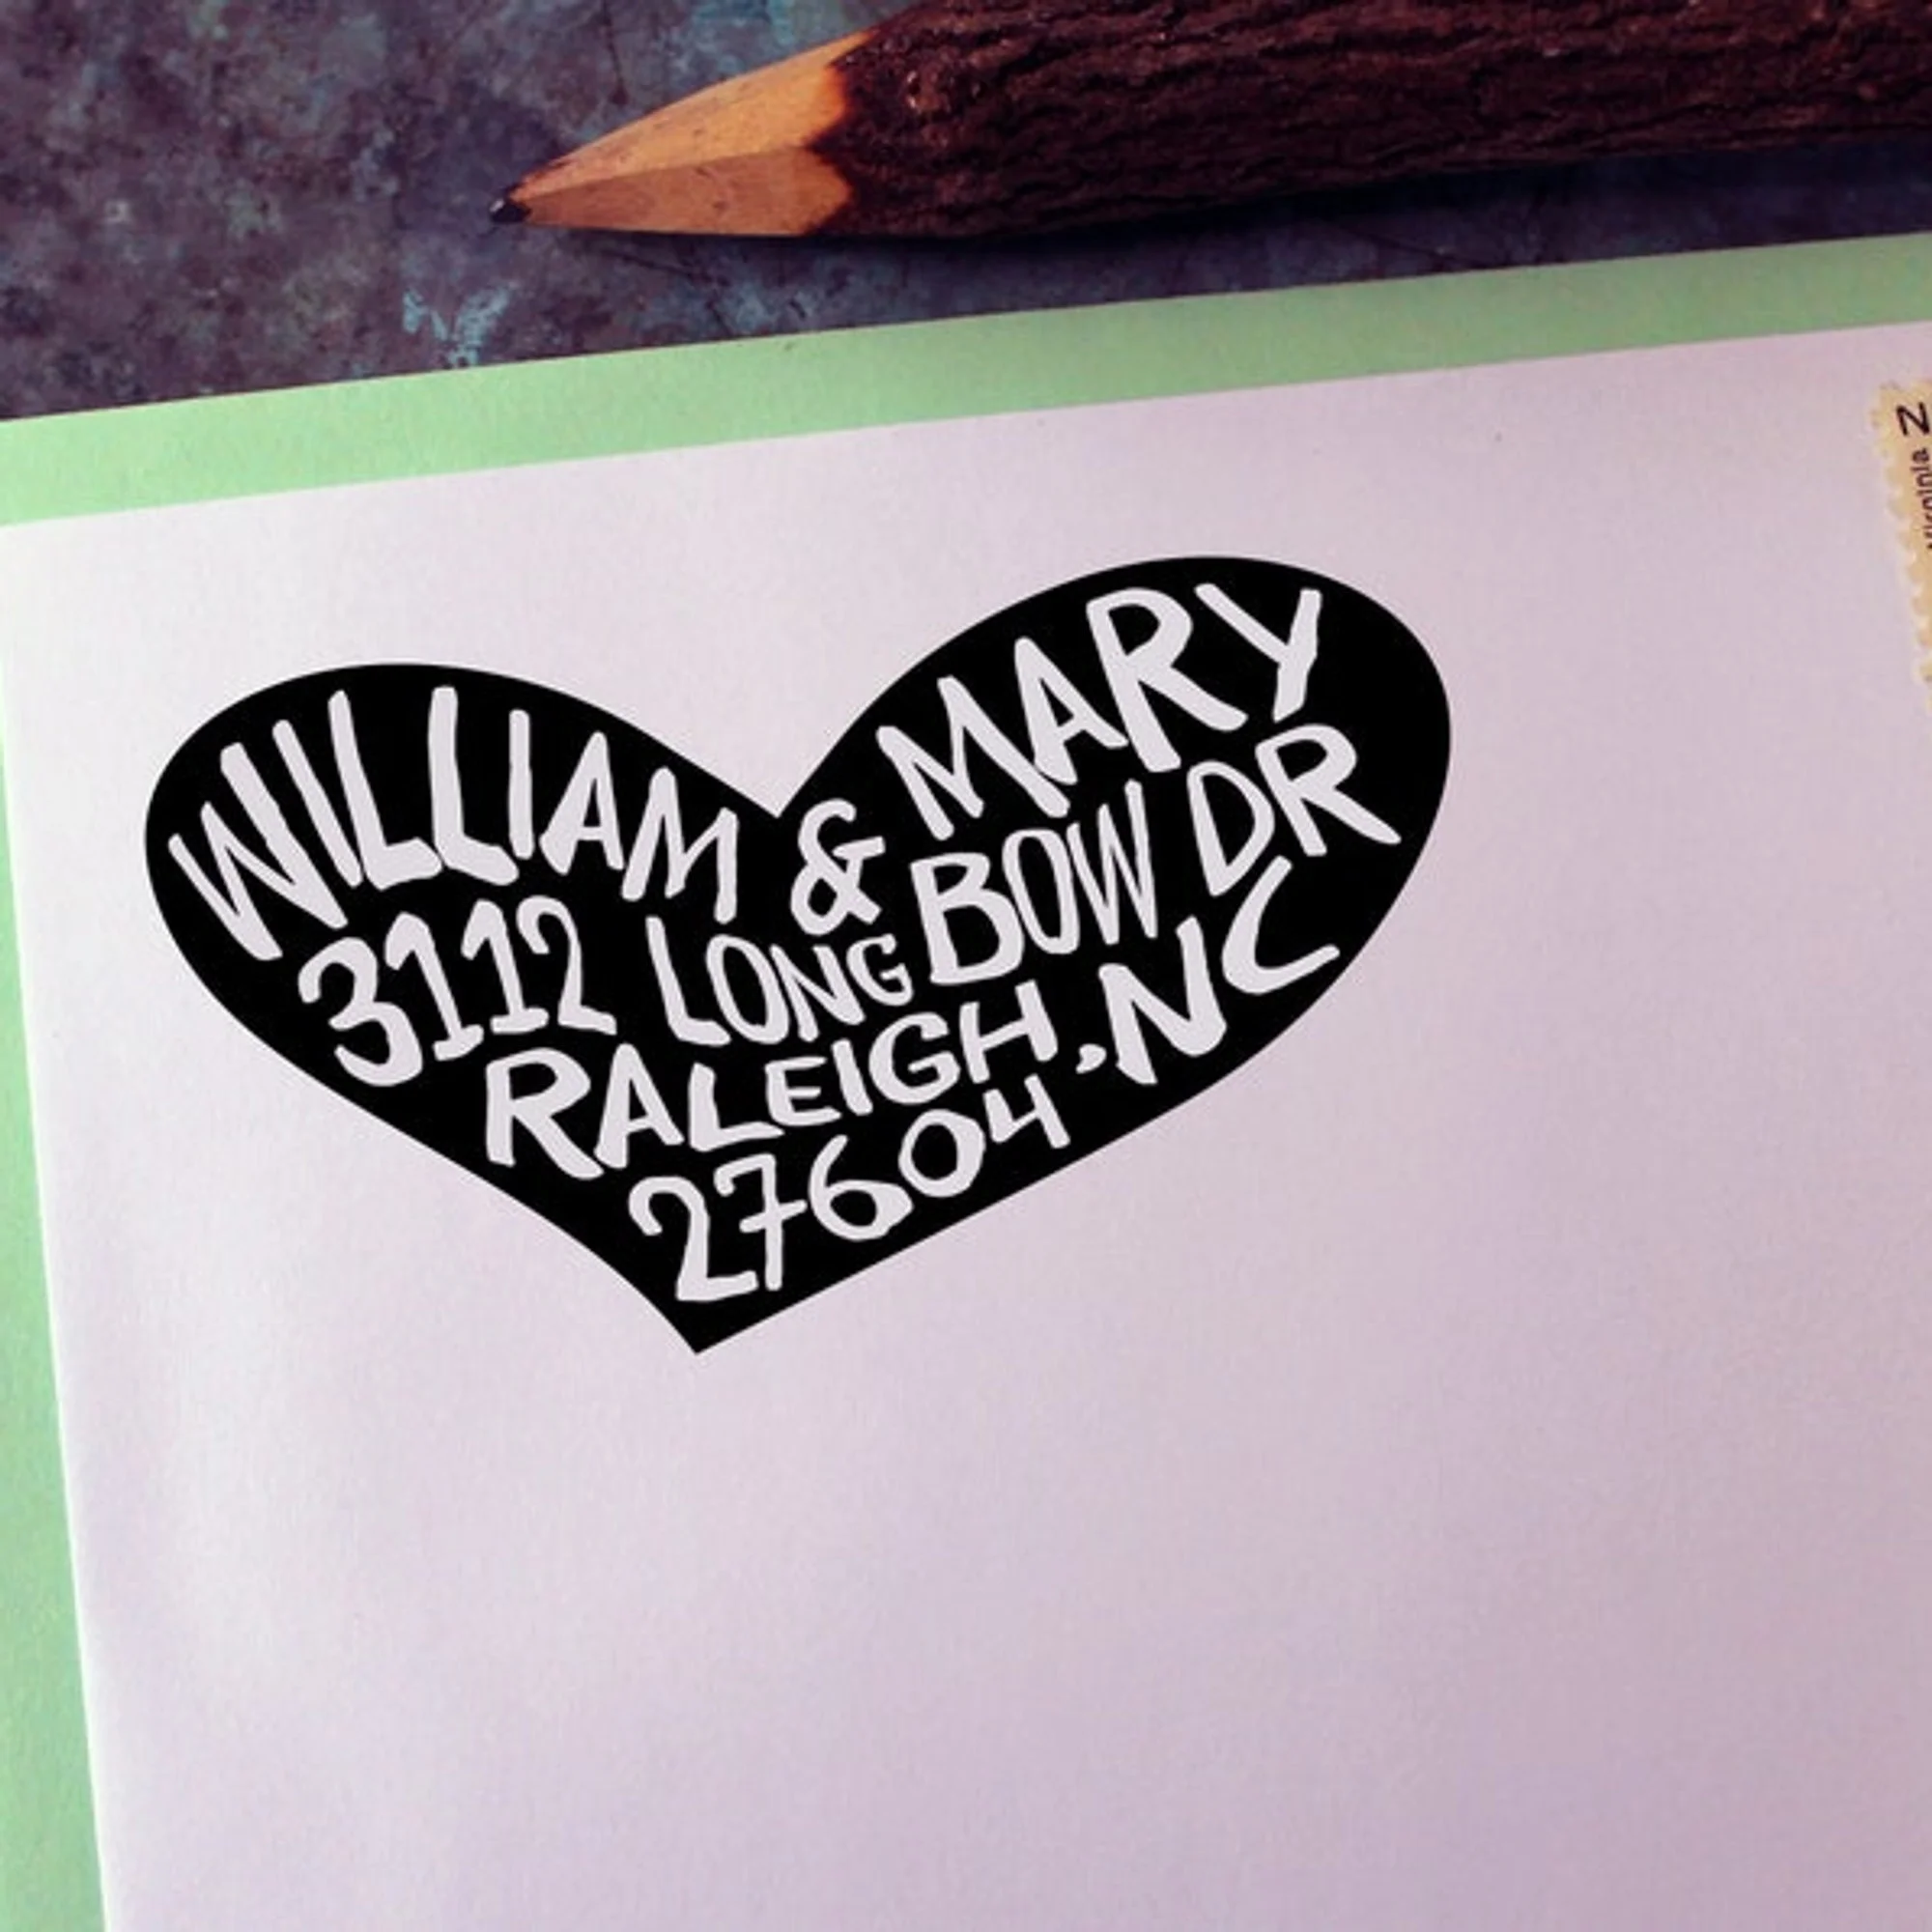 WILLIAM & MARY
3112 LONG BOW DR
RALEIGH, NC
27604